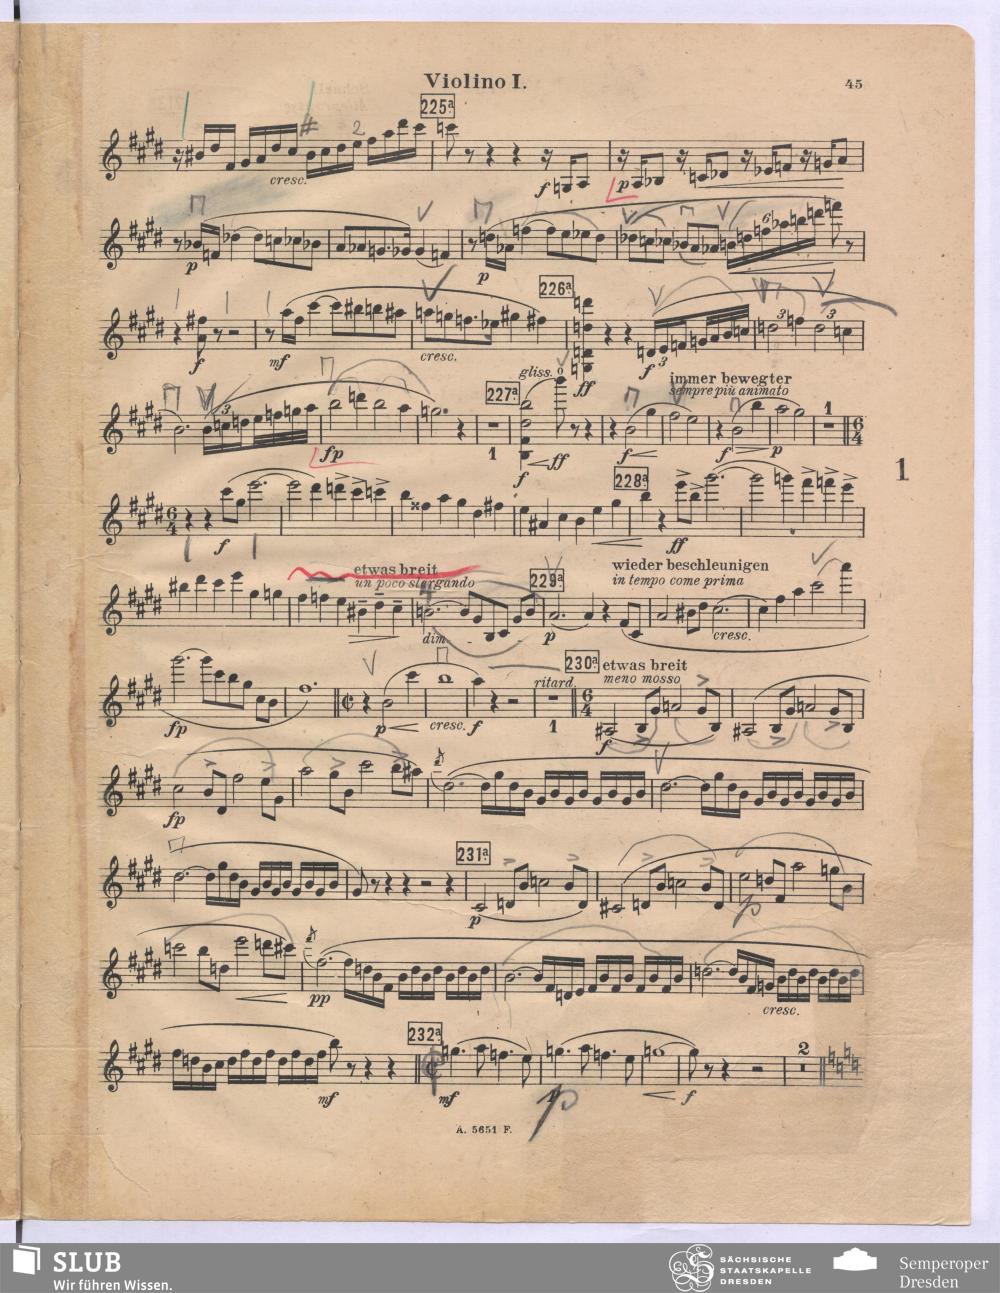 Violino I.
45
225a
cresc.
f
p
p
p
6
226a
f
mf
cresc.
ff
f
3
3
3
3
fp
227a
gliss.
1
f
ff
immer bewegter
sempre più animato
f
f
p
1
6
4
1
6
4
f
228a
ff
etwas breit
un poco slargando
dim.
229a
p
wieder beschleunigen
in tempo come prima
cresc.
fp
p
cresc.
f
ritard.
1
230a
etwas breit
meno mosso
6
4
f
fp
231a
p
p
pp
cresc.
mf
232a
mf
p
f
2
A. 5651 F.
SLUB
Wir führen Wissen.
SÄCHSISCHE
STAATSKAPELLE
DRESDEN
Semperoper
Dresden